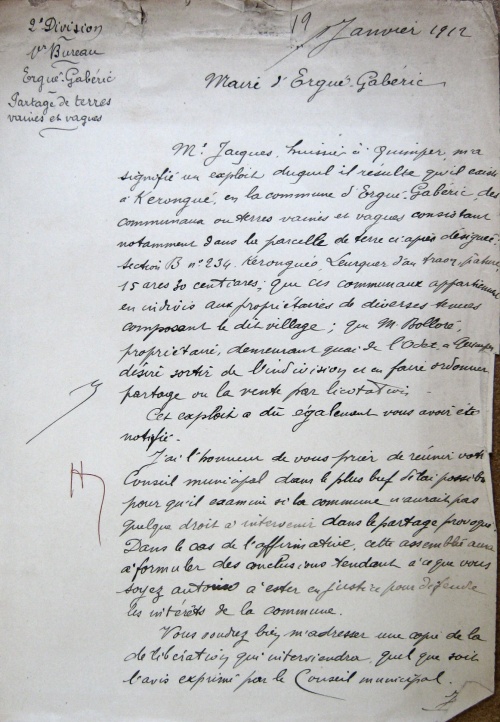 2e Division
1er Bureau
Ergué-Gabéric
Partage de terres
vaines et vagues
19 Janvier 1912
Maire d'Ergué-Gabéric
Mr. Jacques, huissier à Quimper, m'a
signifié un exploit duquel il résulte qu'il existe
à Kerongué, en la commune d'Ergué-Gabéric, des
communaux ou terres vaines et vagues consistant
notamment dans la parcelle de terre ci-après désignée
Section B nº 234. Kerongué, Leurguer d'an traon, pature
15 ares 30 centiares; que ces communaux appartiennent
en indivis aux propriétaires de diverses tenues
composant le dit village; que M. Bolloré,
propriétaire, demeurant quai de l'Odet, à
désire sortir de l'indivision et en faire ordonner
partage ou la vente par licitation.
Cet exploit a dû également vous avoir été
notifié.
J'ai l'honneur de vous prier de réunir votre
Conseil municipal dans le plus bref délai possible
pour qu'il examine si la commune n'aurait pas
quelque droit à intervenir dans le partage provoqué.
Dans le cas de l'affirmative, cette assemblée aura
à formuler des conclusions tendant à ce que vous
soyez autorisé à ester en justice pour défendre
les intérêts de la commune.
Vous voudrez bien m'adresser une copie de la
délibération qui interviendra, quel que soit
l'avis exprimé par le Conseil municipal.